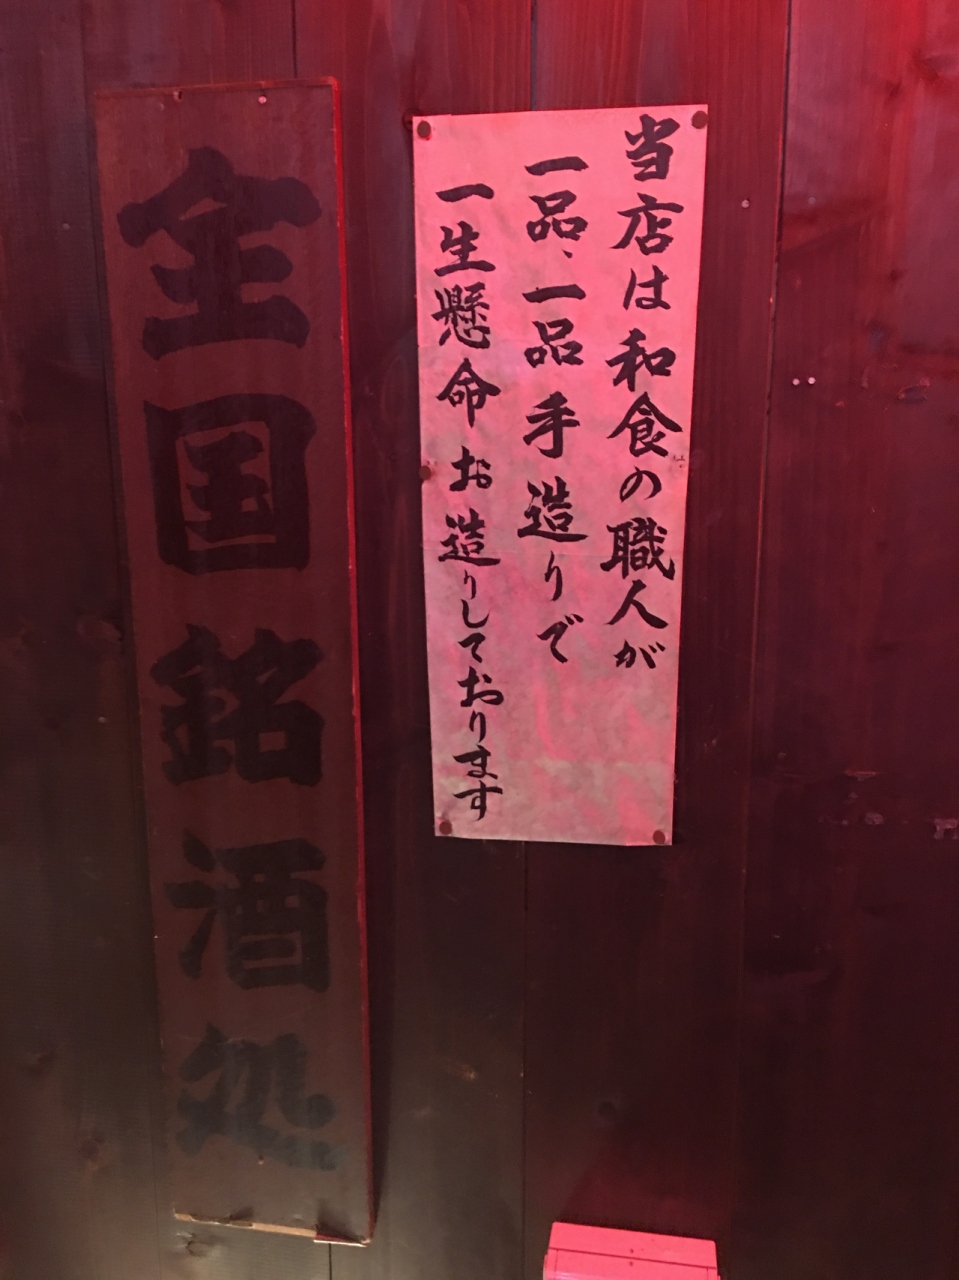 当店は和食の職人が
一品、一品手造りで
一生懸命お造りしております
全国銘酒処